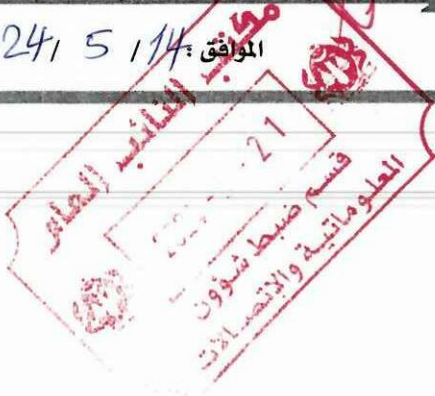 الموافق : 14 / 5 / 24
مكتب النائب العام
21
قسم ضبط شؤون
المعلوماتية والاتصالات